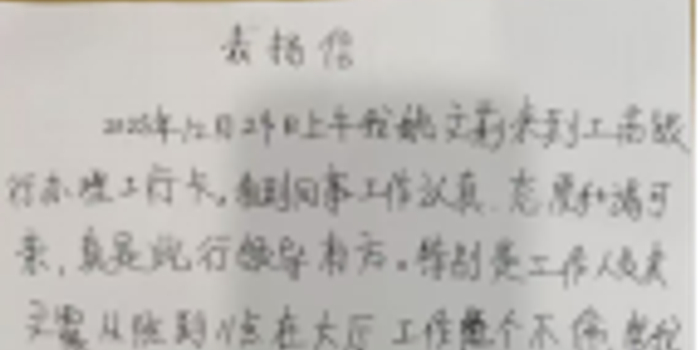 表扬信
2025年12月29日上午我姚文莉来到工商银
行办理工行卡，看到同事工作认真、态度和蔼可
亲，真是此行领导有方。特别是工作人员
从 到 点在大厅工作 个不停